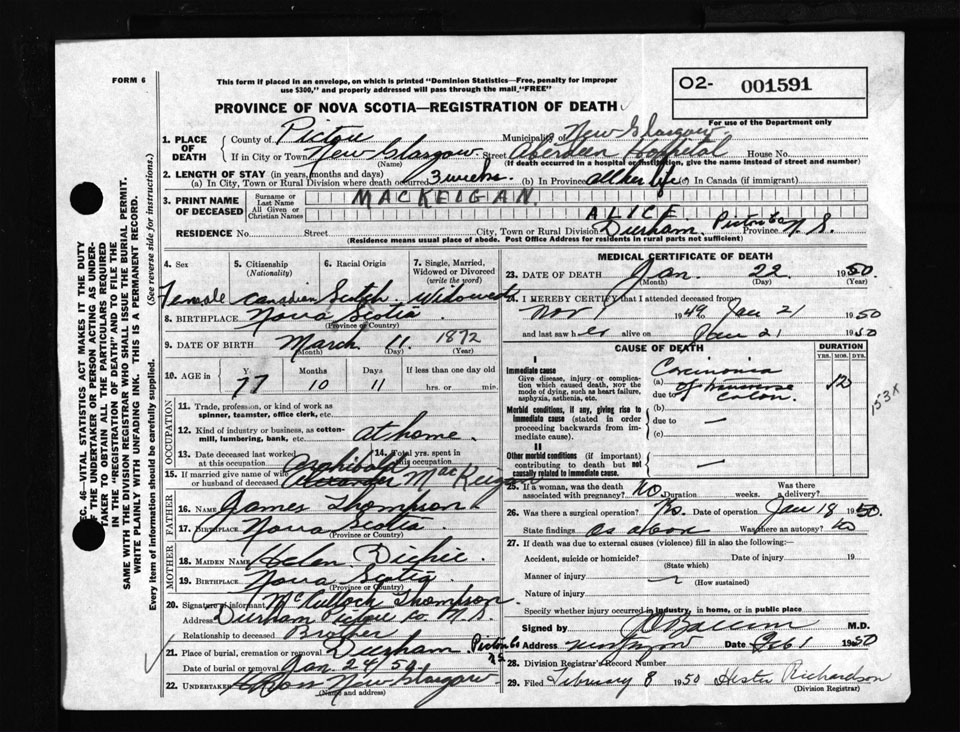 FORM 6
This form if placed in an envelope, on which is printed "Dominion Statistics—Free, penalty for improper
use $300," and properly addressed will pass through the mail "FREE"
O2- 001591
For use of the Department only
PROVINCE OF NOVA SCOTIA—REGISTRATION OF DEATH
1. PLACE OF DEATH
County of Pictou Municipality of New Glasgow
If in City or Town New Glasgow (Name) Street Aberdeen Hospital House No.
(If death occurred in a hospital or institution, give the name instead of street and number)
2. LENGTH OF STAY (in years, months and days)
(a) In City, Town or Rural Division where death occurred 3 weeks (b) In Province all her life (c) In Canada (if immigrant)
3. PRINT NAME OF DECEASED
Surname or Last Name MACKEIGAN
All Given or Christian Names ALICE
RESIDENCE No. Street City, Town or Rural Division Durham, Pictou Co Province N. S.
(Residence means usual place of abode. Post Office Address for residents in rural parts not sufficient)
4. Sex Female
5. Citizenship (Nationality) Canadian
6. Racial Origin Scotch
7. Single, Married, Widowed or Divorced (write the word) Widowed
8. BIRTHPLACE Nova Scotia
(Province or Country)
9. DATE OF BIRTH March 11 1872
(Month) (Day) (Year)
10. AGE in Y. 77 Months 10 Days 11 If less than one day old
hrs. or min.
OCCUPATION
11. Trade, profession, or kind of work as
spinner, teamster, office clerk, etc.
12. Kind of industry or business, as cotton-
mill, lumbering, bank, etc. at home.
13. Date deceased last worked at this occupation
14. Total yrs. spent in this occupation
15. If married give name of wife or husband of deceased Archibald MacKeigan
FATHER
16. NAME James Thompson
17. BIRTHPLACE Nova Scotia
(Province or Country)
MOTHER
18. MAIDEN NAME Helen
19. BIRTHPLACE Nova Scotia
(Province or Country)
20. Signature of informant McCulloch Thompson
Address Durham Pictou Co. N.S.
Relationship to deceased Brother
21. Place of burial, cremation or removal Durham Pictou Co N.S.
Date of burial or removal Jan. 24/50
22. Undertaker New Glasgow
(Name and address)
MEDICAL CERTIFICATE OF DEATH
23. DATE OF DEATH Jan. 22 1950.
(Month) (Day) (Year)
24. I HEREBY CERTIFY that I attended deceased from
Nov 1949 Jan 21 1950
and last saw her alive on Jan 21 1950
CAUSE OF DEATH
DURATION
YRS. MOS. DYS.
I
Immediate cause
Give disease, injury or complica-
tion which caused death, not the
mode of dying, such as heart failure,
asphyxia, asthenia, etc.
(a) Carcinoma
due to of transverse colon.
153 x
Morbid conditions, if any, giving rise to
immediate cause (stated in order
proceeding backwards from im-
mediate cause).
(b)
due to —
(c)
II
Other morbid conditions (if important)
contributing to death but not
causally related to immediate cause. —
25. If a woman, was the death associated with pregnancy? No. Duration weeks. Was there a delivery?
26. Was there a surgical operation? Date of operation Jan 18 1950.
State findings as above Was there an autopsy? No
27. If death was due to external causes (violence) fill in also the following:—
Accident, suicide or homicide? Date of injury 19
(State which)
Manner of injury
(How sustained)
Nature of injury
Specify whether injury occurred in industry, in home, or in public place
Signed by M.D.
Address Date Feb 1 1950
28. Division Registrar's Record Number
29. Filed February 8 1950 Hester Richardson
(Division Registrar)
SEC. 46—VITAL STATISTICS ACT MAKES IT THE DUTY
OF THE UNDERTAKER OR PERSON ACTING AS UNDER-
TAKER TO OBTAIN ALL THE PARTICULARS REQUIRED
IN THE "REGISTRATION OF DEATH" AND TO FILE THE
SAME WITH THE DIVISION REGISTRAR WHO SHALL ISSUE THE BURIAL PERMIT.
WRITE PLAINLY WITH UNFADING INK. THIS IS A PERMANENT RECORD.
Every item of information should be carefully supplied. (See reverse side for instructions.)